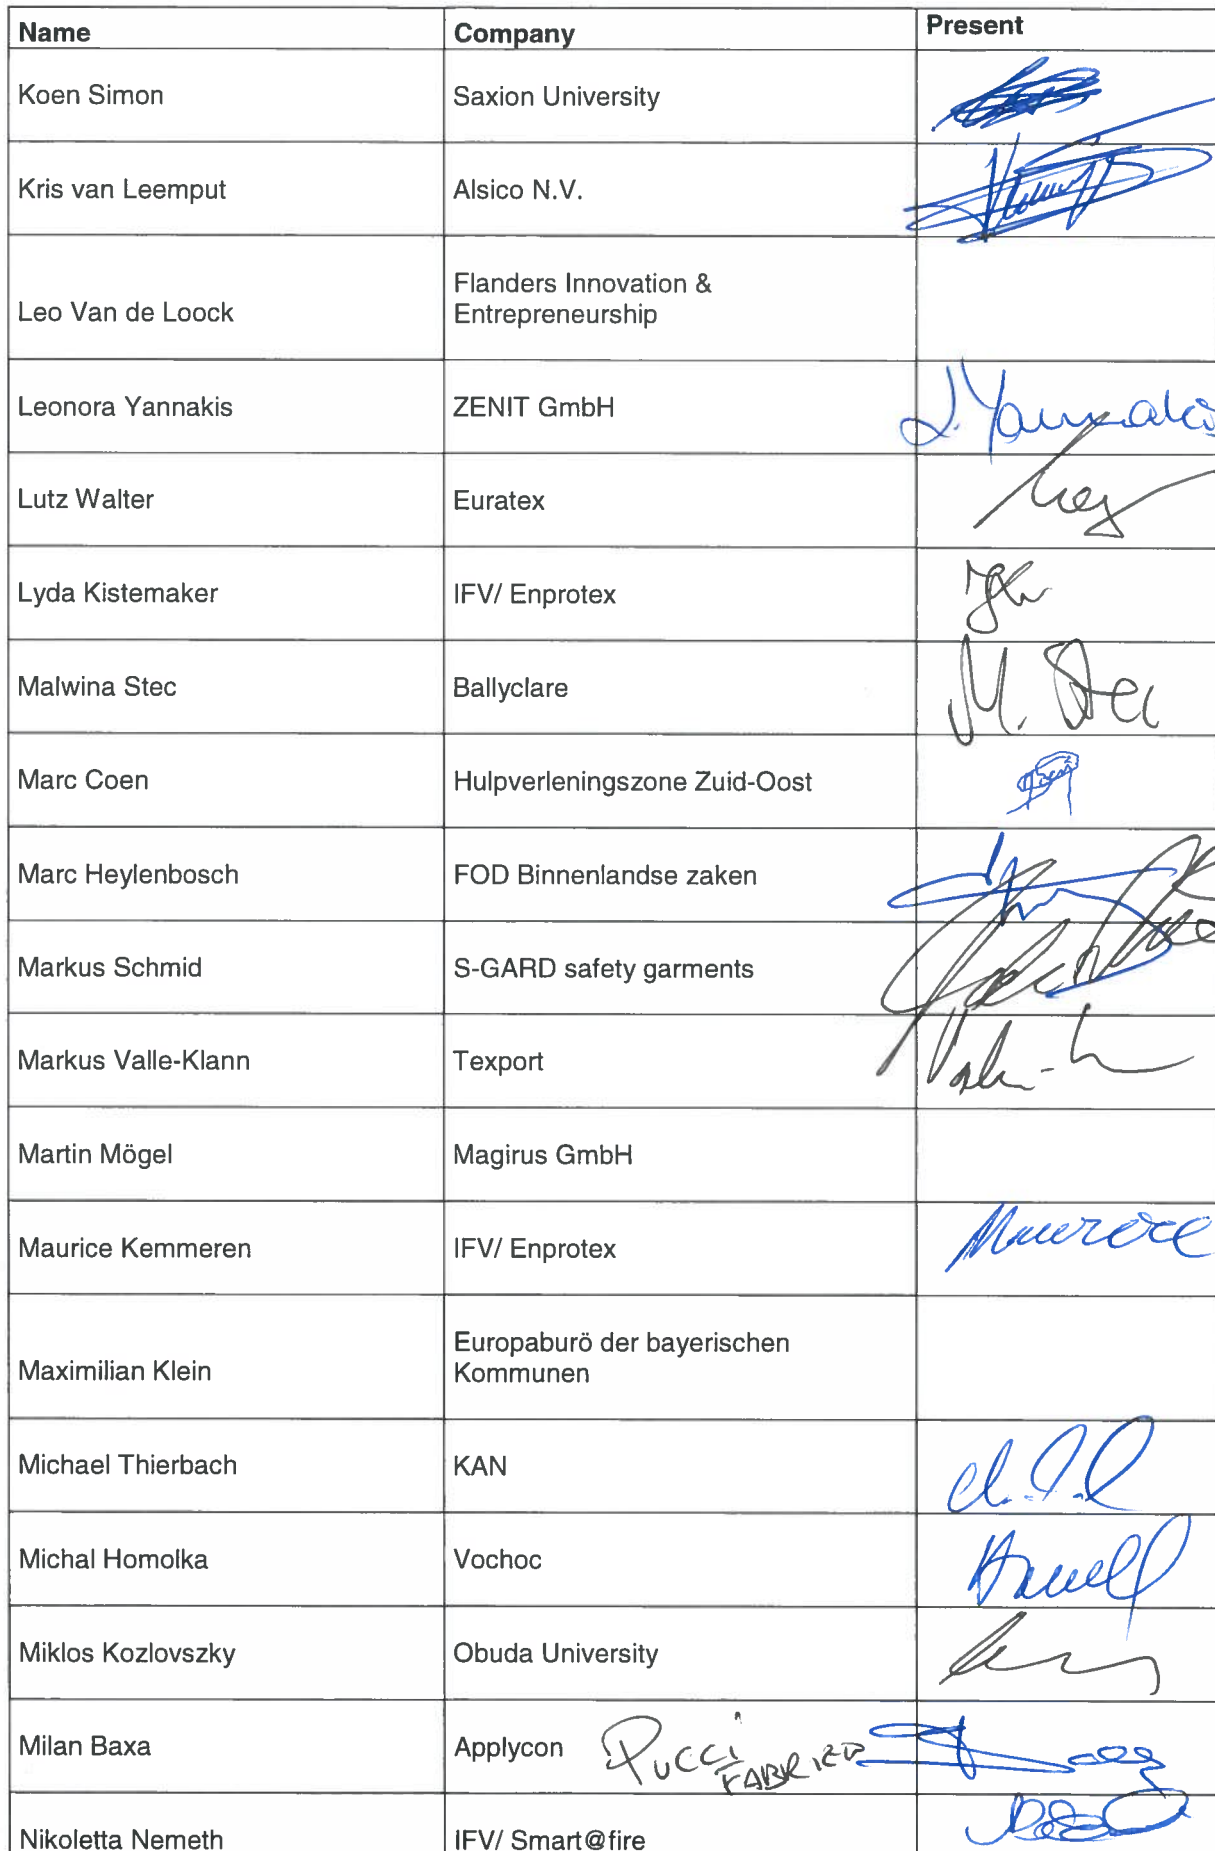 Name Company Present
Koen Simon Saxion University
Kris van Leemput Alsico N.V.
Flanders Innovation &
Leo Van de Loock Entrepreneurship
Leonora Yannakis ZENIT GmbH
Lutz Walter Euratex
Lyda Kistemaker IFV/ Enprotex
Malwina Stec Ballyclare M. Stec
Marc Coen Hulpverleningszone Zuid-Oost
Marc Heylenbosch FOD Binnenlandse zaken
Markus Schmid S-GARD safety garments
Markus Valle-Klann Texport
Martin Mögel Magirus GmbH
Maurice Kemmeren IFV/ Enprotex
Europaburö der bayerischen
Maximilian Klein Kommunen
Michael Thierbach KAN
Michal Homolka Vochoc
Miklos Kozlovszky Obuda University
Milan Baxa Applycon PUCCI
Nikoletta Nemeth IFV/ Smart@fire